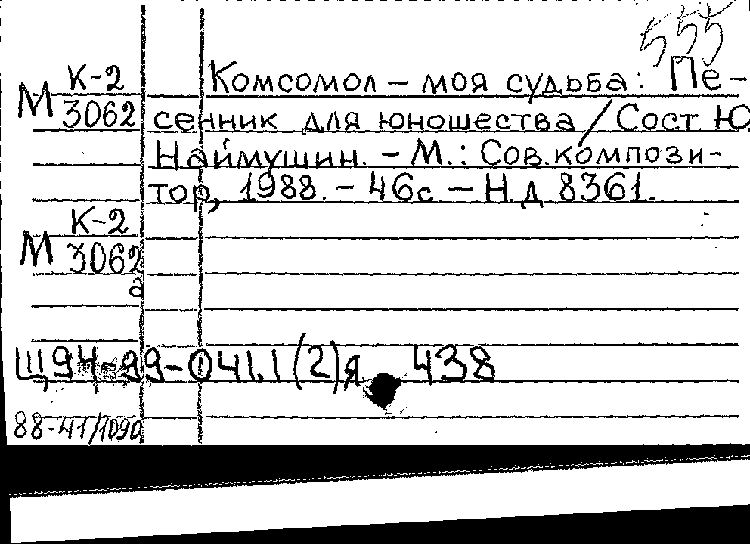 555
К-2 Комсомол – моя судьба: Пе-
М 3062 сенник для юношества / Сост Ю.
Наймушин. – М.: Сов.компози-
тор, 1988. – 46с – Н.д 8361.
К-2
М 3062
а
Щ94-99-041.1(2)я 438
88-41/1090